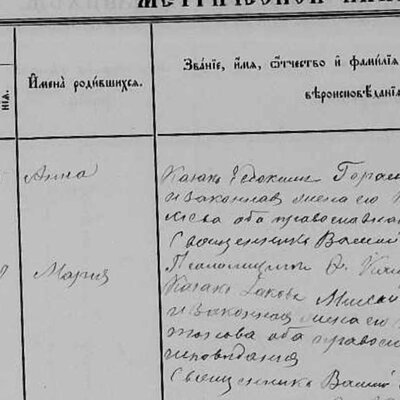 МЕТРИЧЕСКОЙ
нїѧ.
Имена родившихся.
Званїе, имѧ, ѿтчество и фамилїѧ
вѣроисповѣданїѧ
Анна
Казакъ Евдокимъ Гераси
и законная жена его
обa православна
Священникъ Васил
Мария
Псаломщикъ Ѳ.
Казакъ Іаковъ
и законная жена его
оба правосл
исповѣданія
Священникъ Васил